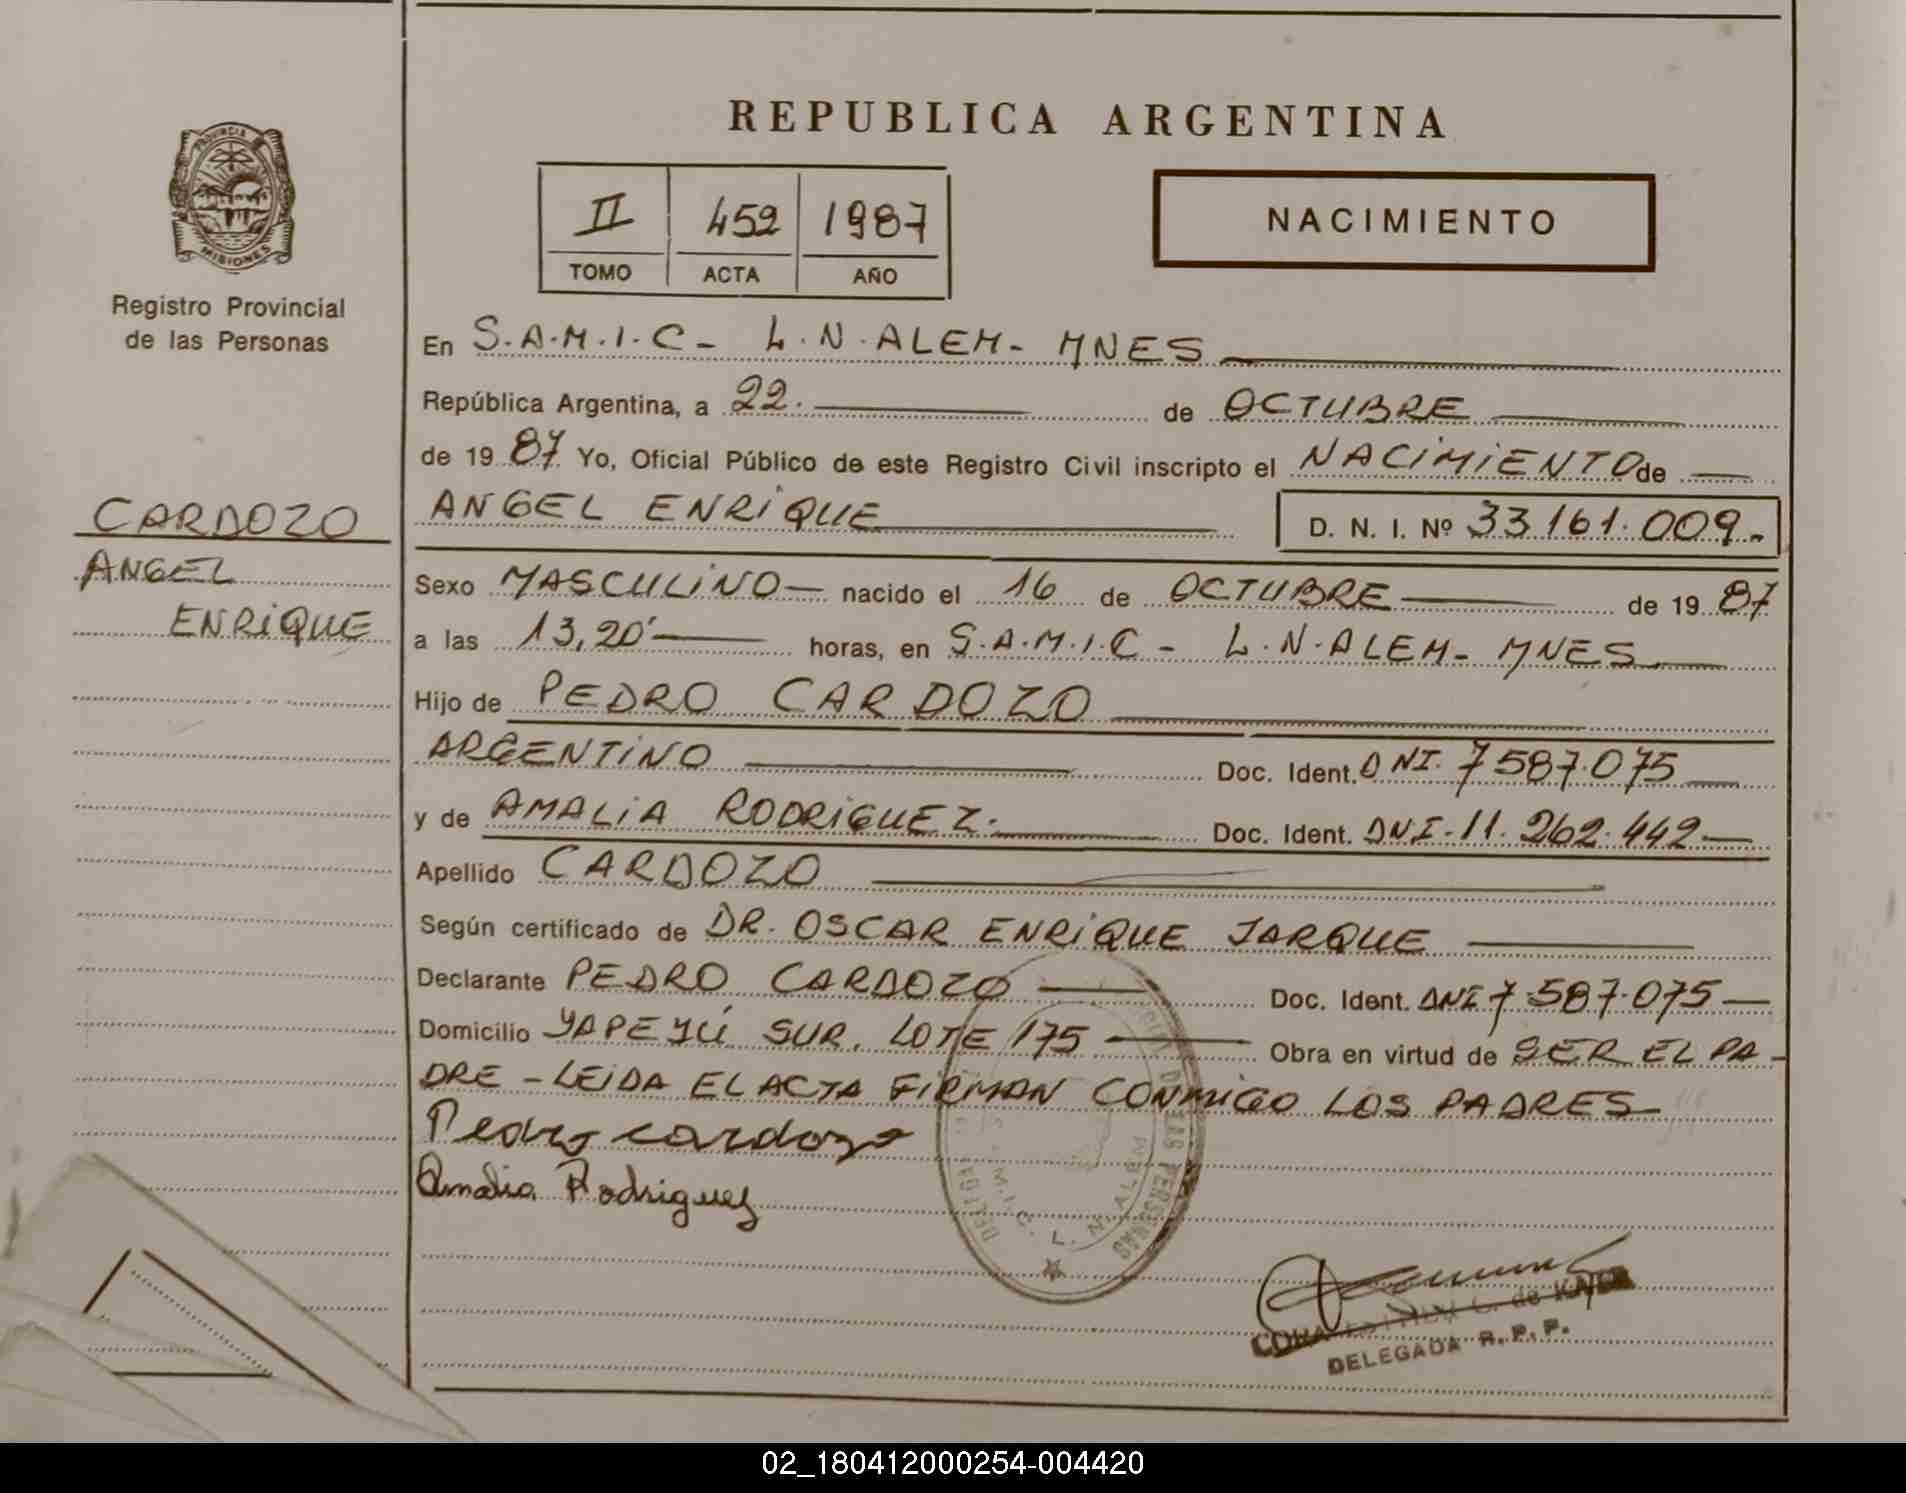 REPUBLICA ARGENTINA
PROVINCIA
MISIONES
Registro Provincial
de las Personas
II 452 1987
TOMO ACTA AÑO
NACIMIENTO
En S.A.M.I.C- L.N.ALEM- MNES
República Argentina, a 22. de OCTUBRE
de 1987 Yo, Oficial Público de este Registro Civil inscripto el NACIMIENTO de
CARDOZO
ANGEL
ENRIQUE
ANGEL ENRIQUE D. N. I. Nº 33.161.009.-
Sexo MASCULINO nacido el 16 de OCTUBRE de 1987
a las 13,20' horas, en S.A.M.I.C- L.N.ALEM- MNES
Hijo de PEDRO CARDOZO
ARGENTINO Doc. Ident. DNI. 7.587.075
y de AMALIA RODRIGUEZ. Doc. Ident. DNI-11.262.442
Apellido CARDOZO
Según certificado de DR. OSCAR ENRIQUE JARQUE
Declarante PEDRO CARDOZO Doc. Ident. DNI 7.587.075
Domicilio YAPEYÚ SUR. LOTE 175 Obra en virtud de SER EL PA-
DRE - LEIDA EL ACTA FIRMAN CONMIGO LOS PADRES
Pedro cardozo
Amalia Rodriguez
DE LAS PERSONAS
S.A.M.I.C. L. N. ALEM
DELEGADA R. P. P.
02_180412000254-004420